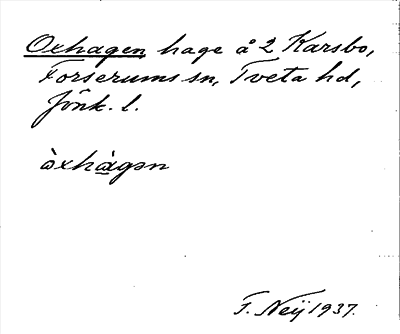 Oxhagen hage å 2 Karsbo,
Forserums sn, Tveta hd,
Jönk. l.
òxhàgən
F. Neij 1937.